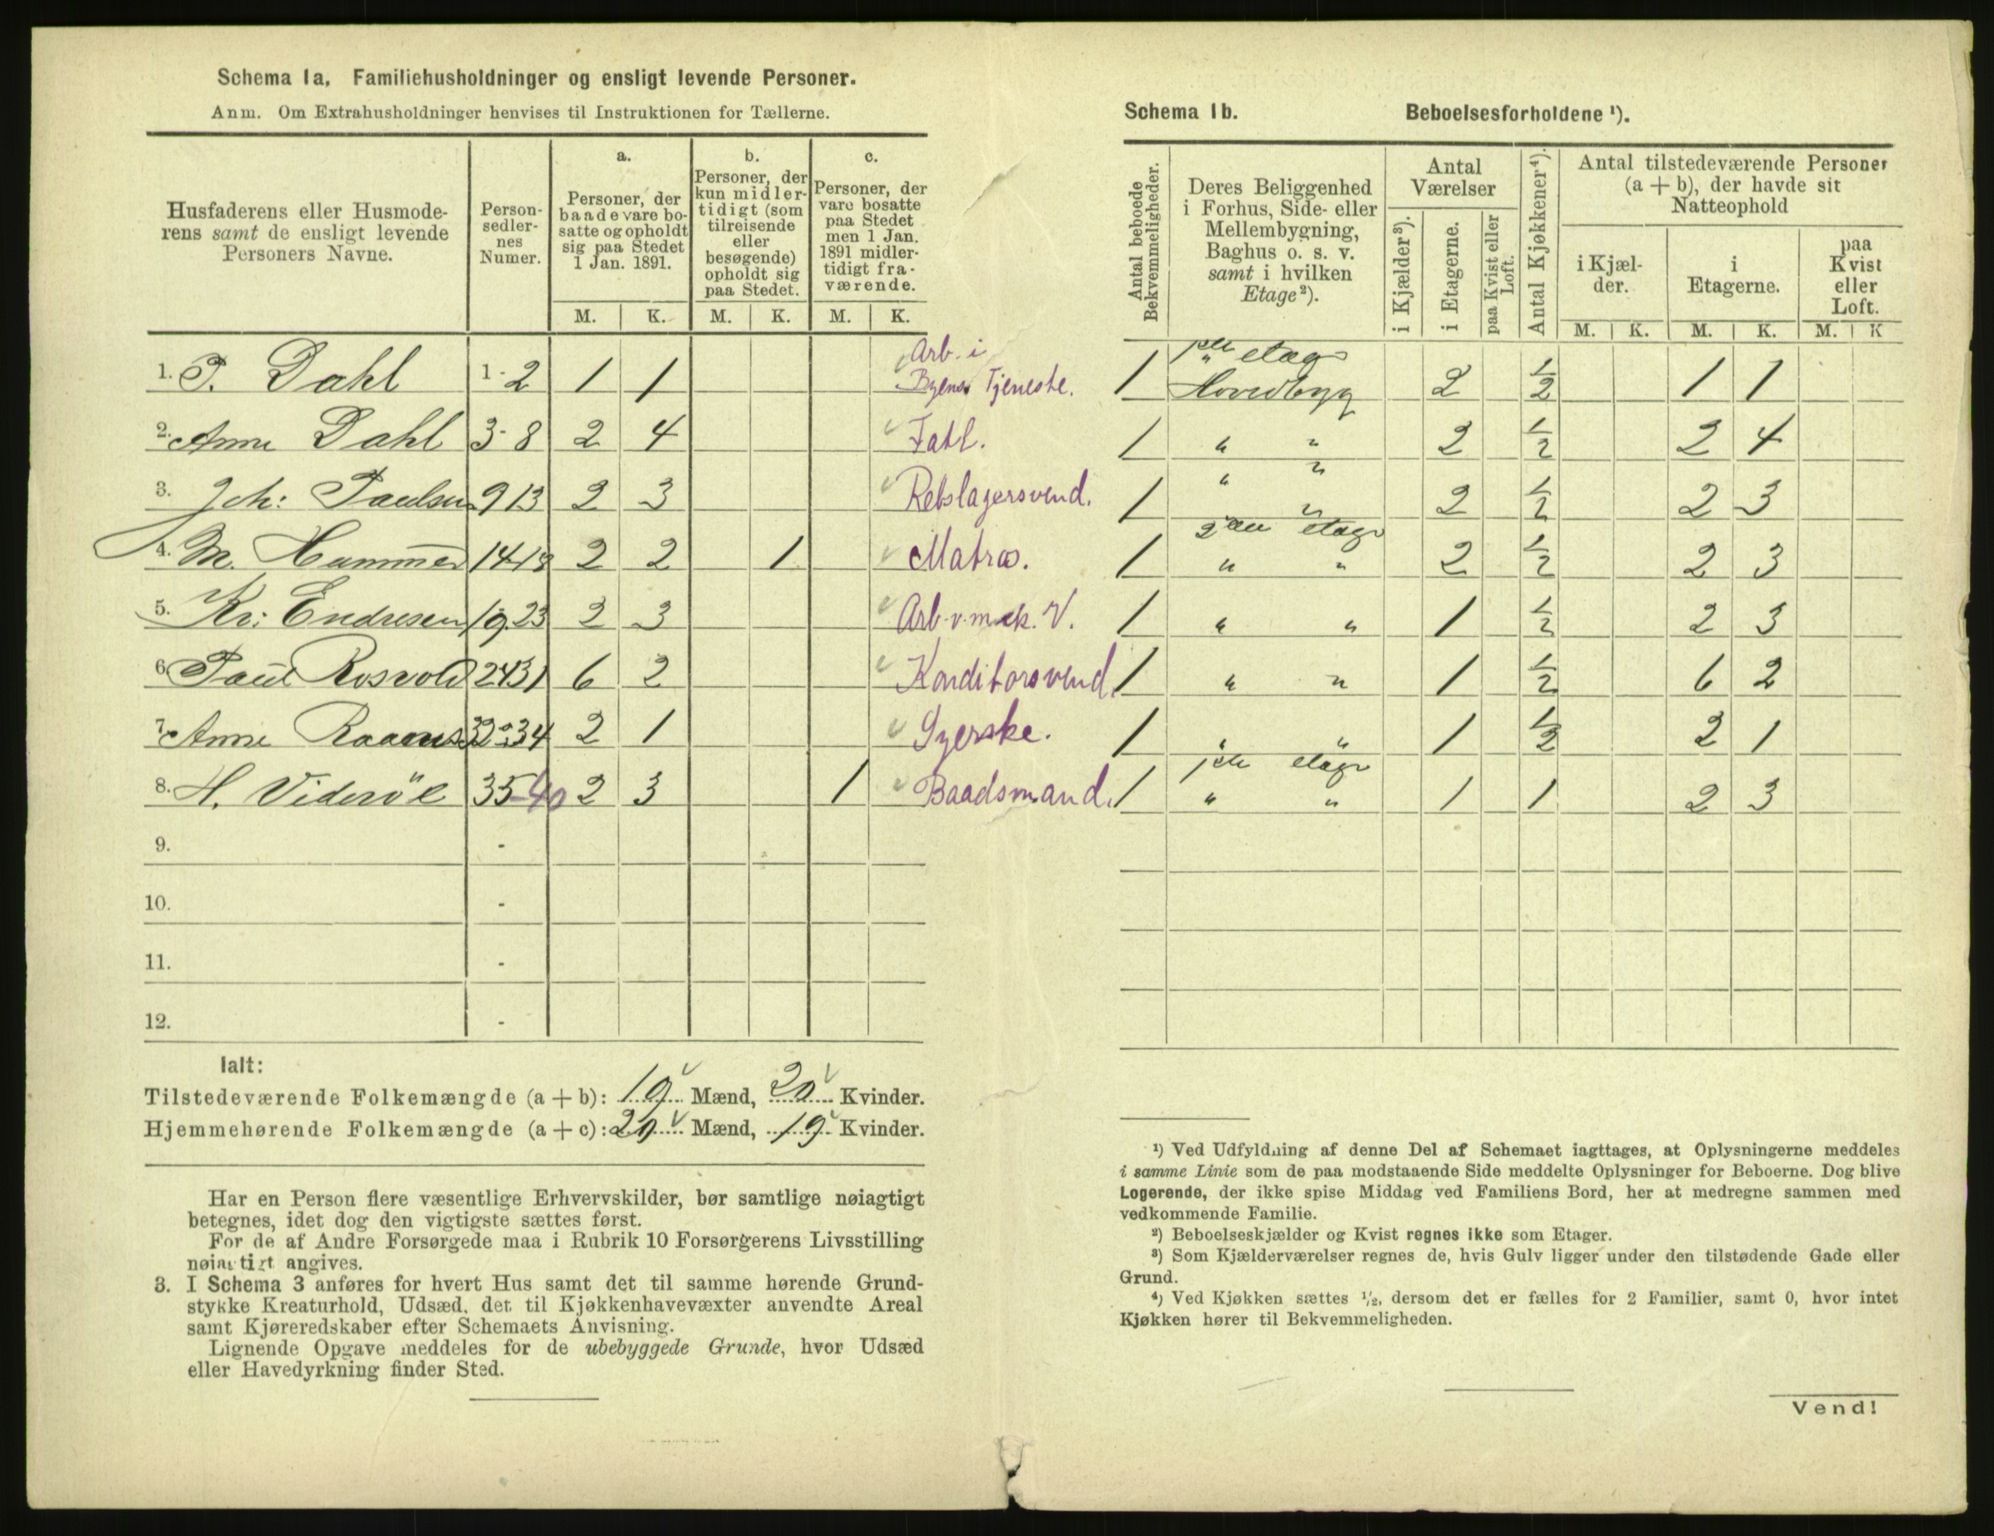 Schema 1a. Familiehusholdninger og ensligt levende Personer.
Anm. Om Extrahusholdninger henvises til Instruktionen for Tællerne.
Husfaderens eller Husmode-
rens samt de ensligt levende
Personers Navne.
Person-
sedler-
nes
Numer.
a.
Personer, der
baade vare bo-
satte og opholdt
sig paa Stedet
1 Jan. 1891.
b.
Personer, der
kun midler-
tidigt (som
tilreisende
eller
besøgende)
opholdt sig
paa Stedet.
c.
Personer, der
vare bosatte
paa Stedet
men 1 Jan.
1891 midler-
tidigt fra-
værende.
M. K. M. K. M. K.
1. P. Dahl 1-2 1 1 Arb. i
Byens Tjeneste.
2. Anne Dahl 3-8 2 4 Fatl.
3. Joh: Paulsen 9 13 2 3 Rebslagersvend.
4. M. Hammer 14-18 2 2 1 Matros.
5. Kr: Endresen 19-23 2 3 Arb. v. mek. V.
6. Paul Rosvold 24-31 6 2 Konditorsvend.
7. Anne 32-34 2 1 Syerske.
8. H. Videröe 35-40 2 3 1 Baadsmand.
9. -
10. -
11. -
12. -
Ialt:
Tilstedeværende Folkemængde (a + b): 19 Mænd, 20 Kvinder.
Hjemmehørende Folkemængde (a + c): 20 Mænd, 19 Kvinder.
Har en Person flere væsentlige Erhvervskilder, bør samtlige nøiagtigt
betegnes, idet dog den vigtigste sættes først.
For de af Andre Forsørgede maa i Rubrik 10 Forsørgerens Livsstilling
nøiagtigt angives.
3. I Schema 3 anføres for hvert Hus samt det til samme hørende Grund-
stykke Kreaturhold, Udsæd, det til Kjøkkenhavevæxter anvendte Areal
samt Kjøreredskaber efter Schemaets Anvisning.
Lignende Opgave meddeles for de ubebyggede Grunde, hvor Udsæd
eller Havedyrkning finder Sted.
Schema 1b. Beboelsesforholdene ¹).
Antal beboede
Bekvemmeligheder.
Deres Beliggenhed
i Forhus, Side- eller
Mellembygning,
Baghus o. s. v.
samt i hvilken
Etage²).
Antal
Værelser
i Kjælder³).
i Etagerne.
paa Kvist eller
Loft.
Antal Kjøkkener⁴).
Antal tilstedeværende Personer
(a + b), der havde sit
Natteophold
i Kjæl-
der.
i
Etagerne.
paa
Kvist
eller
Loft.
M. K. M. K. M. K
1ste etage
1 Hovedbyg 2 ½ 1 1
1 " " 2 ½ 2 4
" "
1 " 2 ½ 2 3
2den etage
1 " " 2 ½ 2 3
1 " " 1 ½ 2 3
1 " " 1 ½ 6 2
1 " " 1 ½ 2 1
etage
1 " " 1 1 2 3
¹) Ved Udfyldning af denne Del af Schemaet iagttages, at Oplysningerne meddeles
i samme Linie som de paa modstaaende Side meddelte Oplysninger for Beboerne. Dog blive
Logerende, der ikke spise Middag ved Familiens Bord, her at medregne sammen med
vedkommende Familie.
²) Beboelseskjælder og Kvist regnes ikke som Etager.
³) Som Kjælderværelser regnes de, hvis Gulv ligger under den tilstødende Gade eller
Grund.
⁴) Ved Kjøkken sættes ½, dersom det er fælles for 2 Familier, samt 0, hvor intet
Kjøkken hører til Bekvemmeligheden.
Vend!